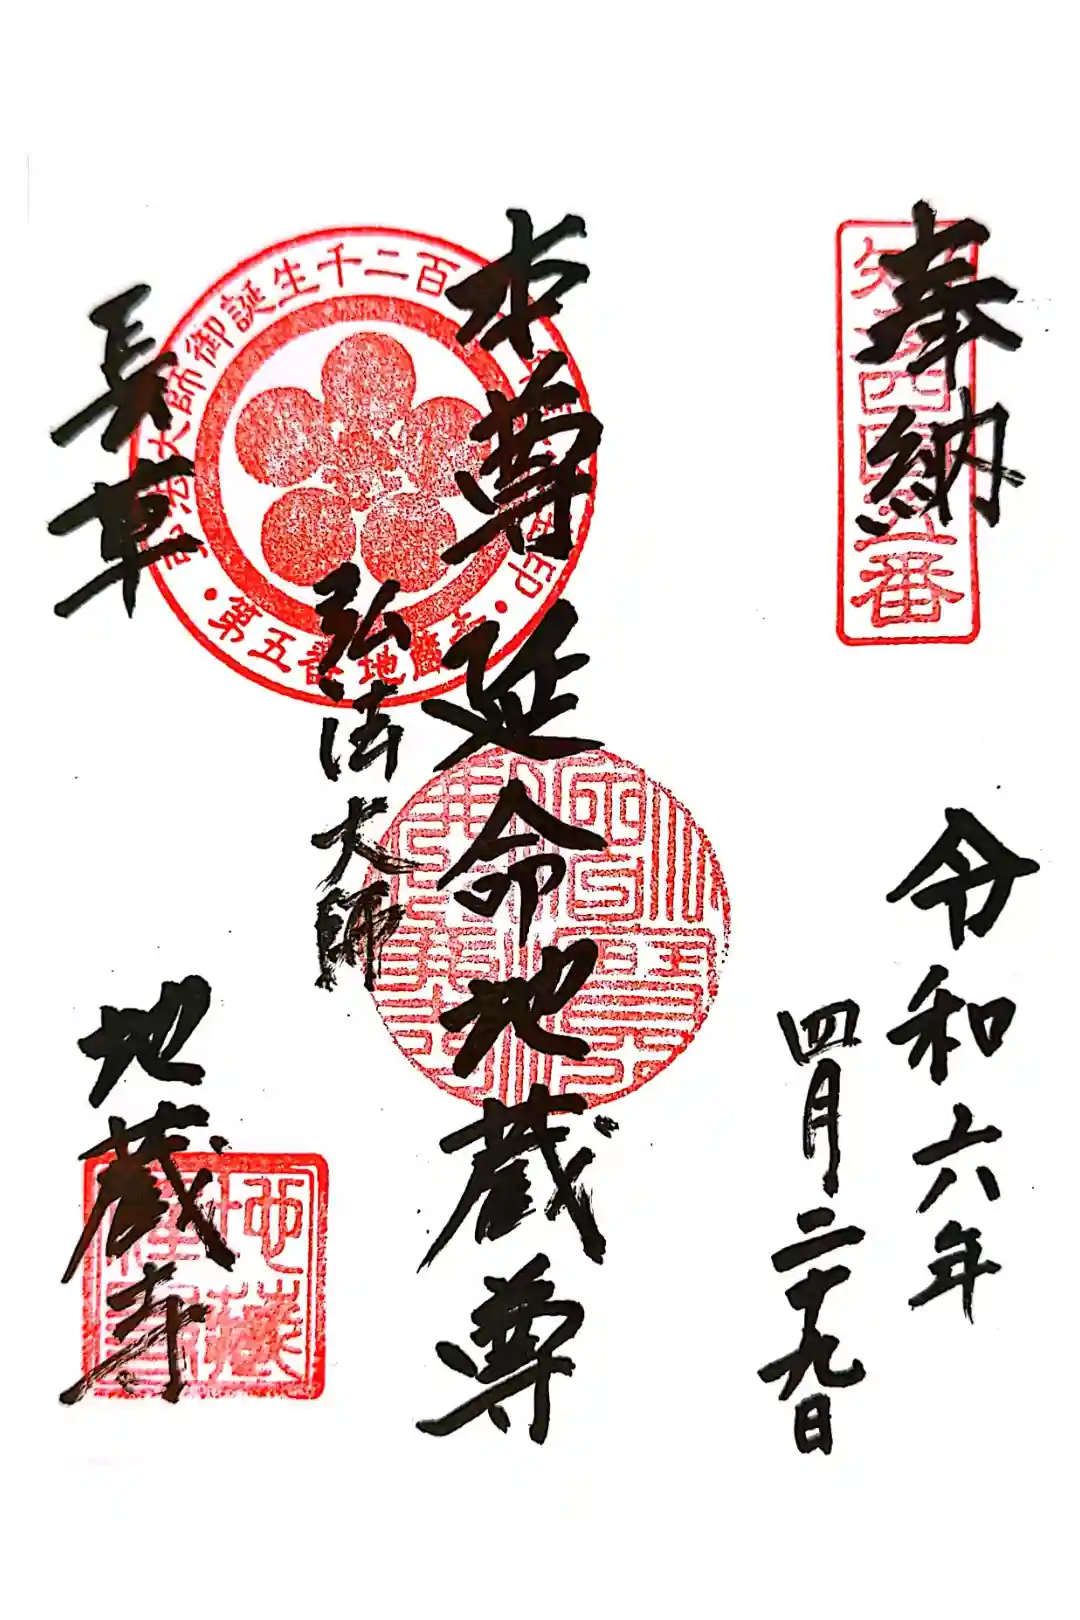 奉納
知多四国五番
令和六年
四月二十九日
本尊 延命地蔵尊
弘法大師
弘法大師御誕生千二百
第五番 地蔵寺
長草
地蔵寺